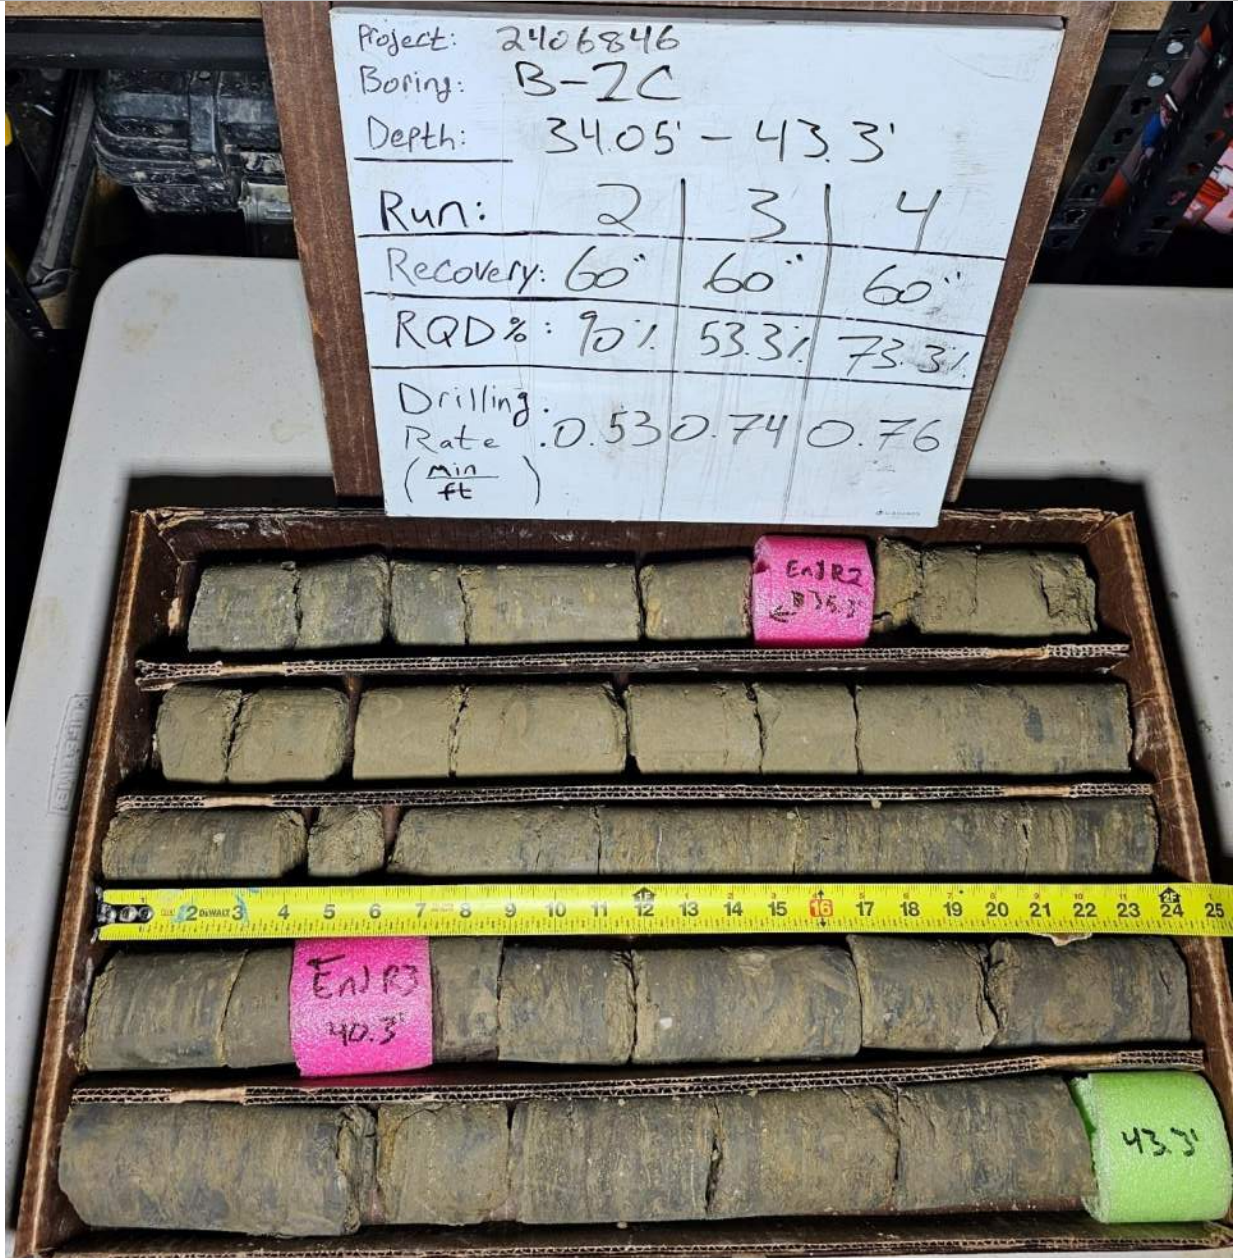 Project: 2406846
Boring: B-2C
Depth: 34.05' - 43.3'
Run: 2 | 3 | 4
Recovery: 60" 60" 60"
RQD%: 90% 53.3% 73.3%
Drilling
Rate : 0.53 0.74 0.76
(min/ft)
End R2
35.3'
2 DEWALT 3 4 5 6 7 8 9 10 11 12 13 14 15 16 17 18 19 20 21 22 23 24 25
End R3
40.3'
43.3'